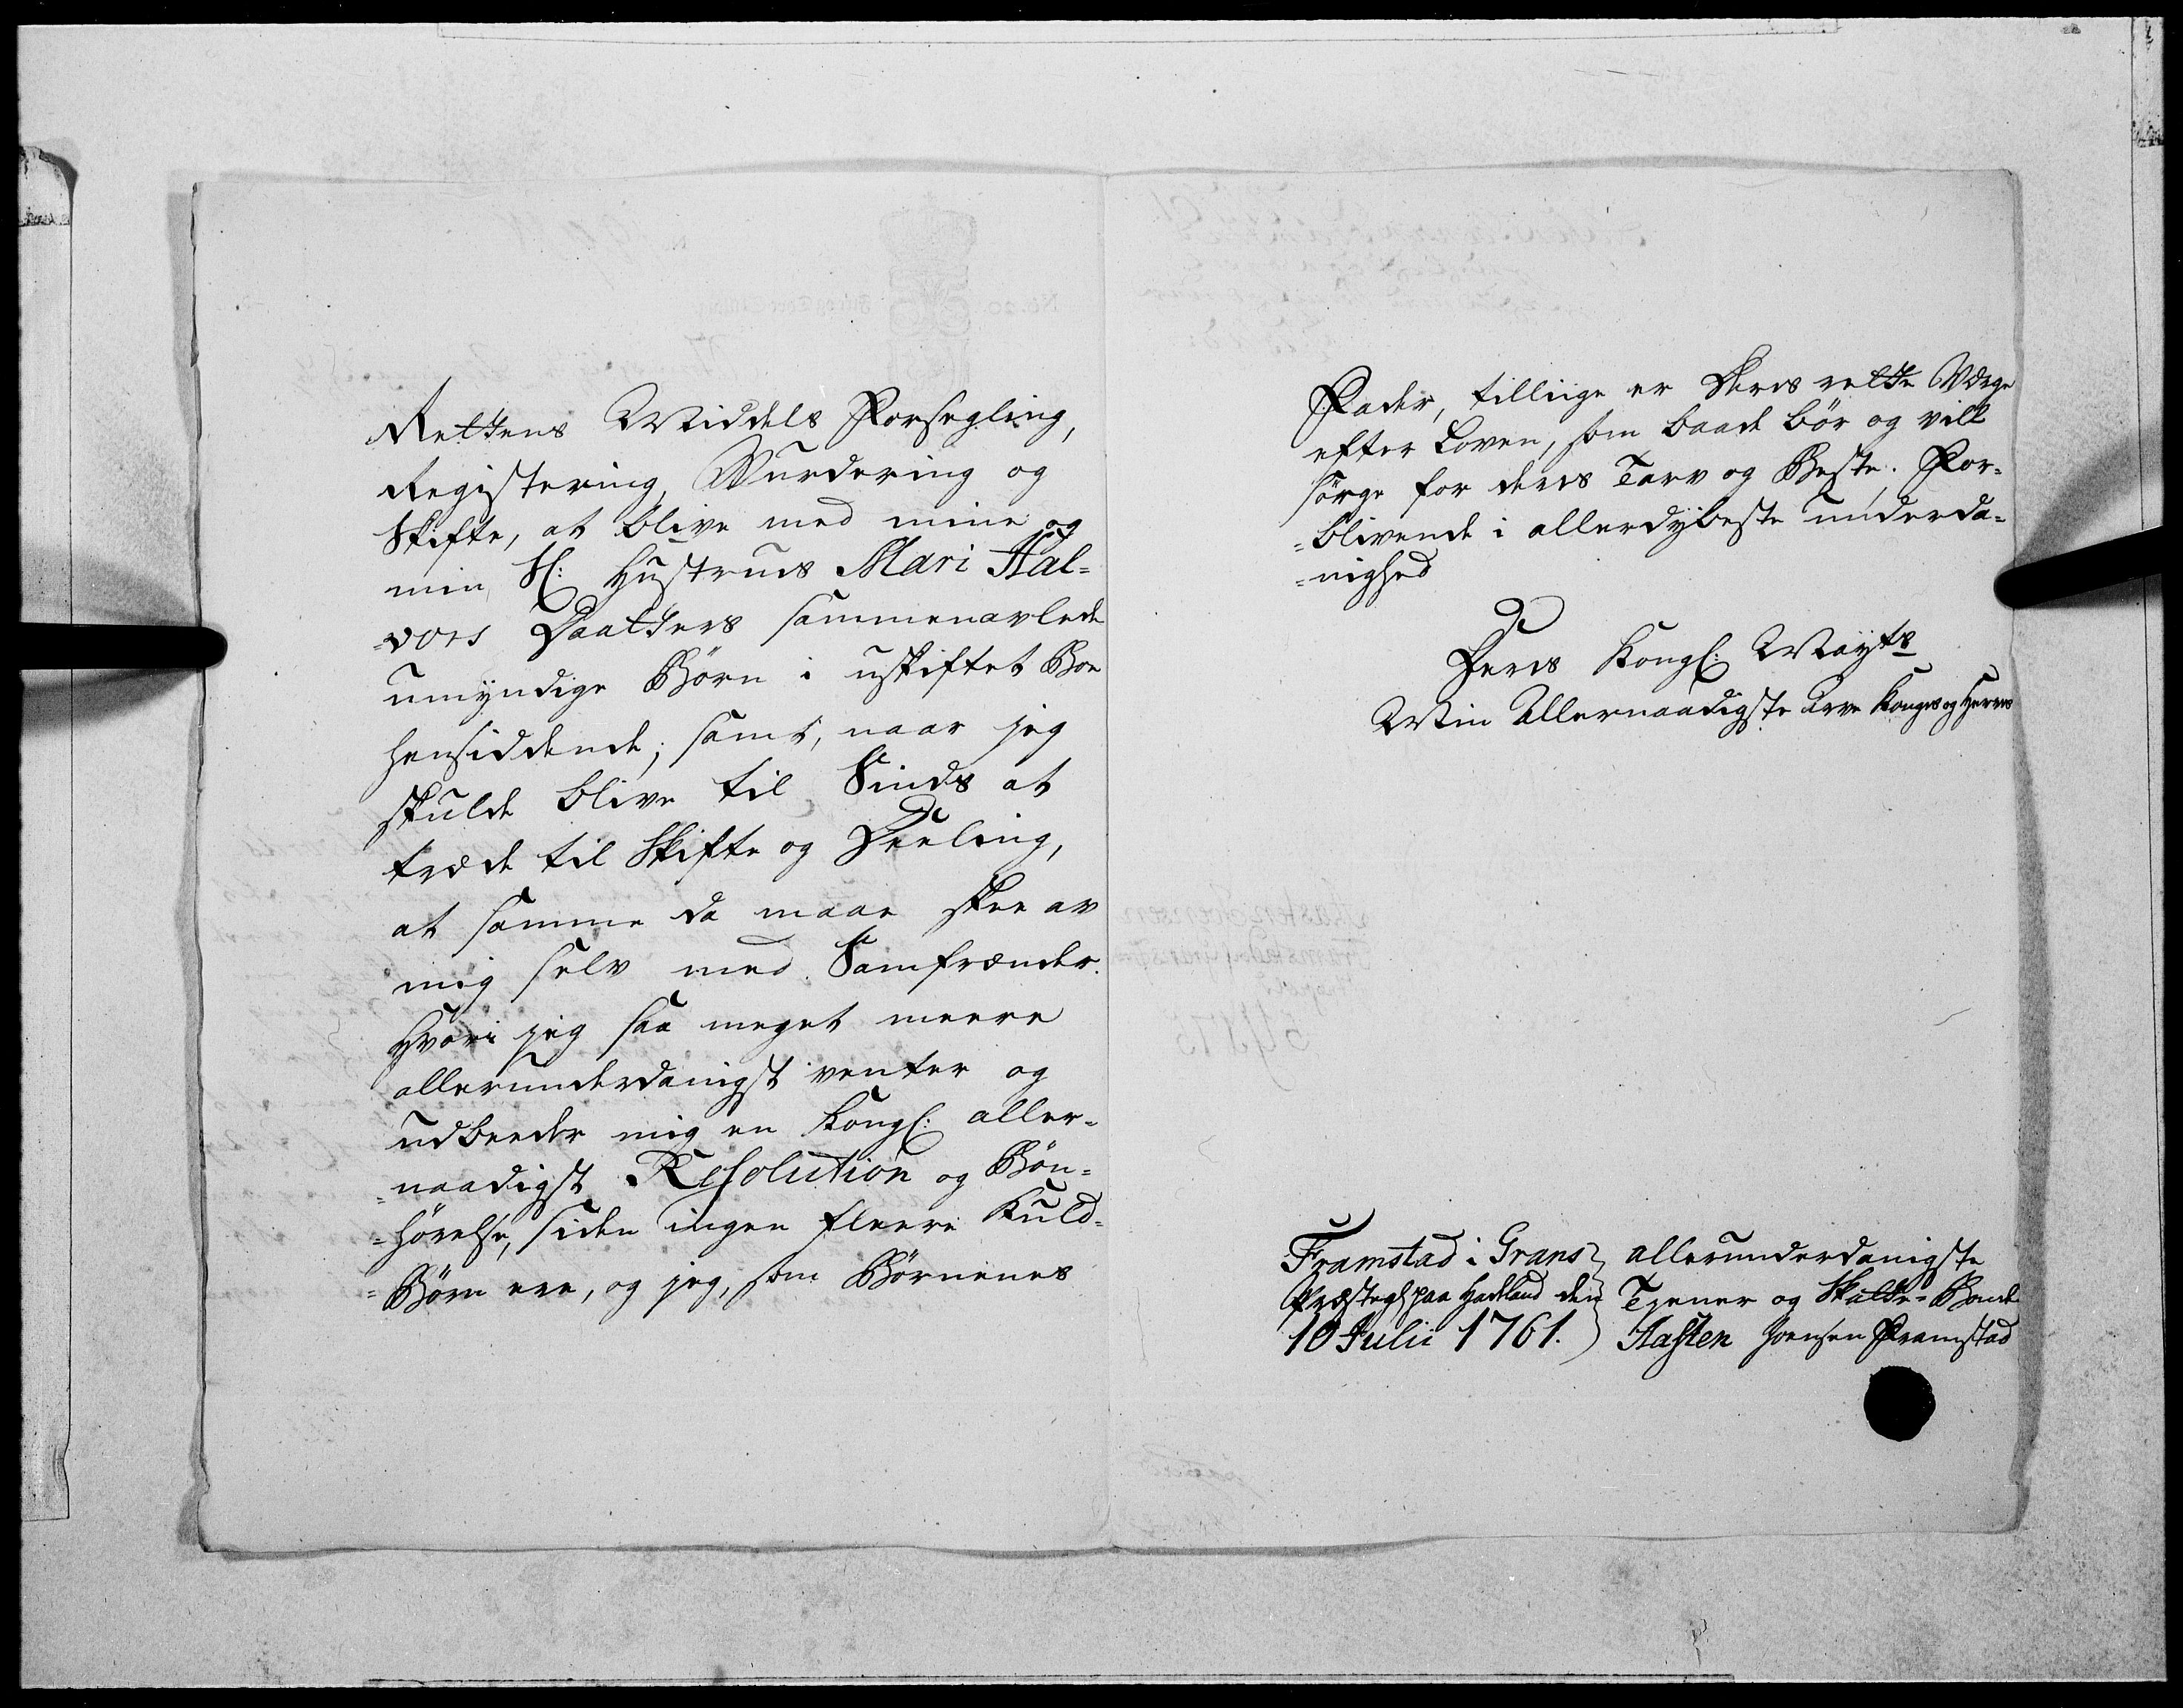 Rettens Middels Forsegling,
Registering, Vurdering og
Skifte, at blive med mine og
min Sl: Hustrues Mari Hal-
=vors Daatters sammenavlede
umyndige Børn i uskiftet Boe
hensiddende; samt, naar jeg
skulde blive til Sinds at
træde til Skifte og Deeling,
at samme da maae skee av
mig selv med Samfrænder.
Hvori jeg saa meget meere
allerunderdanigst venter og
udbeeder mig en Kongl: aller-
=naadigst Resolution og Bøn-
=hørelse, siden ingen fleere Kuld-
=Børn ere, og jeg, som Børnenes
Fader, tilliige er deres rette Værge
efter Loven, som baade bør og vill
sørge for deres Tarv og Beste. For-
=blivende i allerdybeste underda-
=nighed
Deres Kongl: Mayts
Min Allernaadigste Arve Konges og Herres
Framstad i Grans
Præstegl paa Hadeland den
10 Julii 1761.
allerunderdanigste
Tjener og Skatte-Bonde
Aasten Joensen Framstad